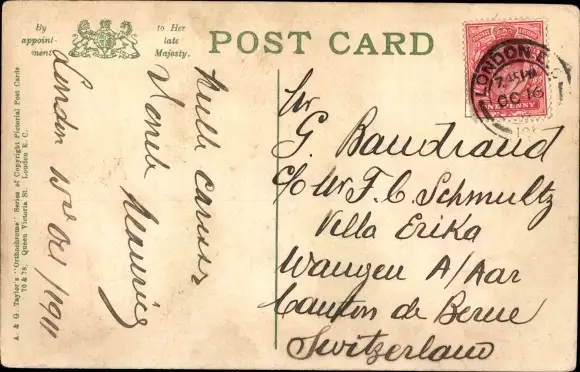 By appoint-ment
to Her late Majesty.
POST CARD
A. & G. Taylor's "Orthochrome" Series of Copyright Pictorial Post Cards
70 & 78, Queen Victoria St. London E. C.
London Oct/1911
Mille
Maurice
LONDON E.C
7.45 PM
OC 16
ONE PENNY
Mr
G. Baudraud
c/o Mr F. C. Schmultz
Villa Erika
Wangen A/Aar
Canton de Berne
Switzerland